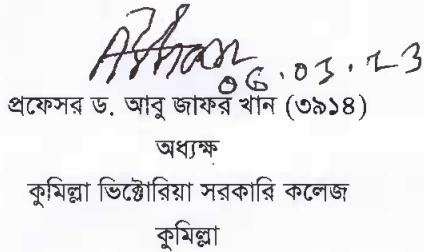 06.03.23
প্রফেসর ড. আবু জাফর খান (৩৯১৪)
অধ্যক্ষ
কুমিল্লা ভিক্টোরিয়া সরকারি কলেজ
কুমিল্লা